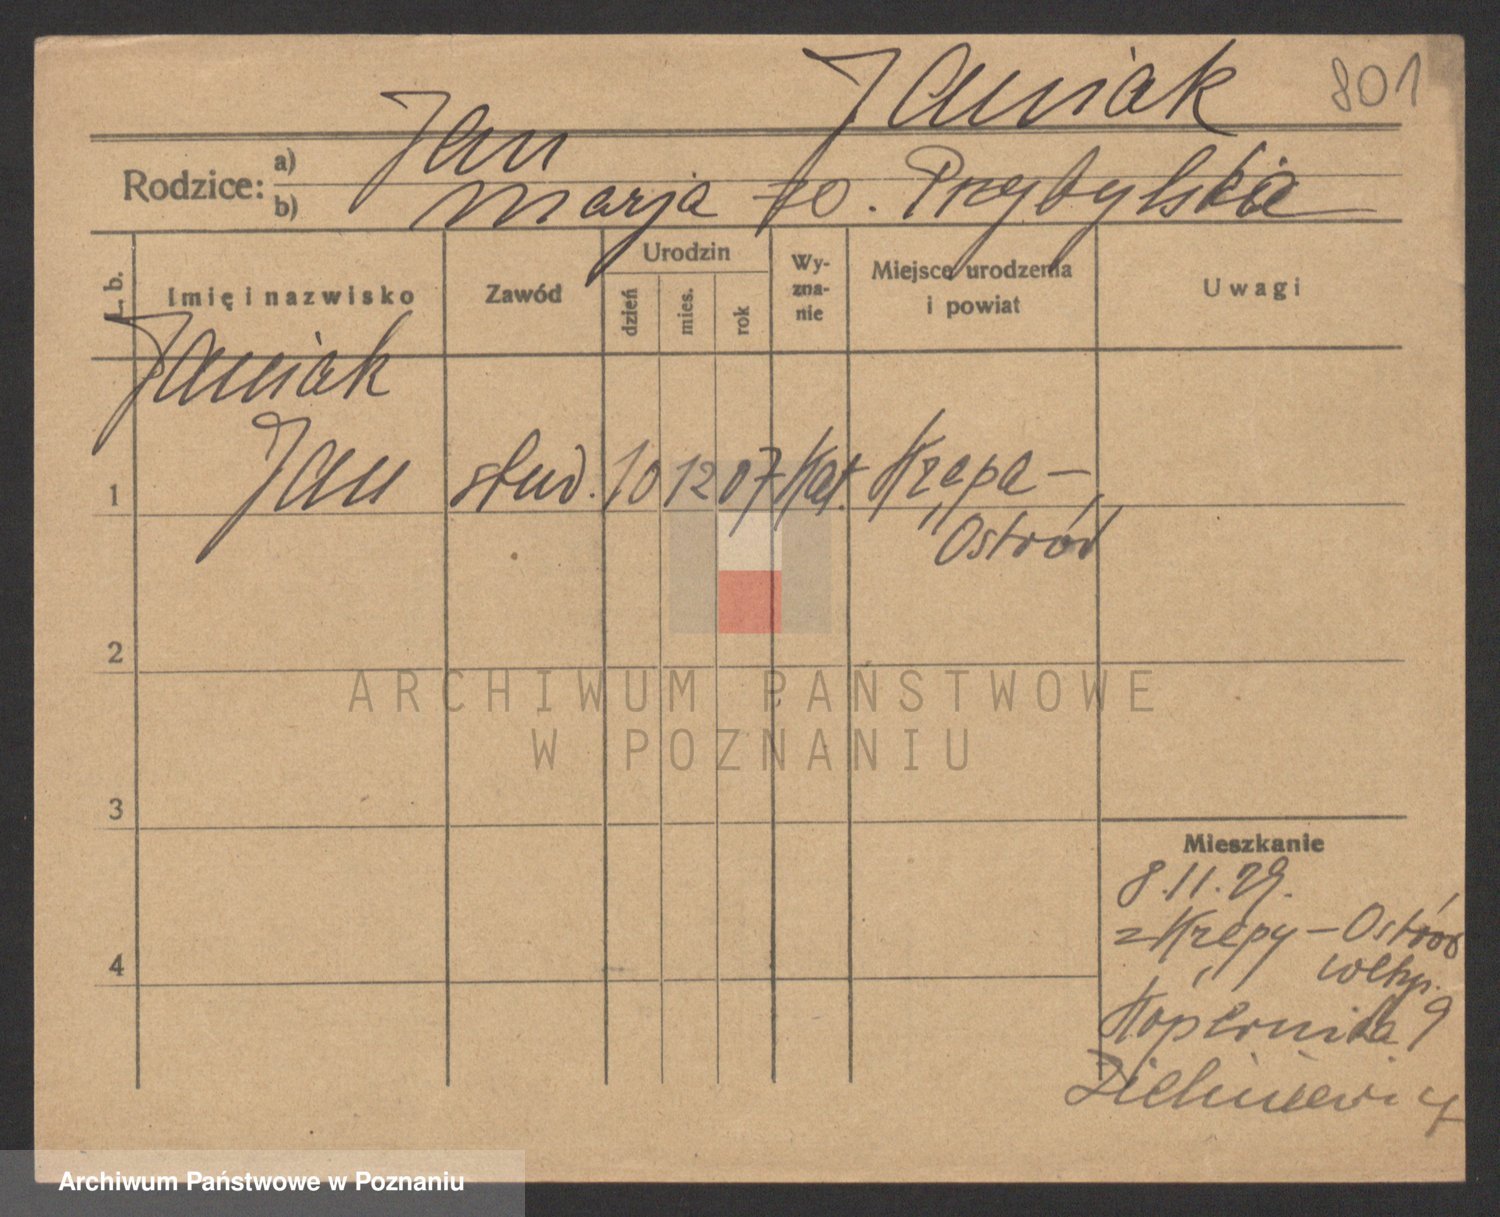 Janiak 801
Rodzice:
a) Jan
b) Marja z d. Przybylskie
L. b.
Imię i nazwisko
Zawód
Urodzin
dzień
mies.
rok
Wy-
zna-
nie
Miejsce urodzenia
i powiat
Uwagi
Janiak
1 Jan stud. 10 12 07 Kat. Krępa –
Ostrów
2
3
4
Mieszkanie
8.11.29.
z Krępy – Ostrów
wlkp.
Kopernika 9
ARCHIWUM PAŃSTWOWE
W POZNANIU
Archiwum Państwowe w Poznaniu